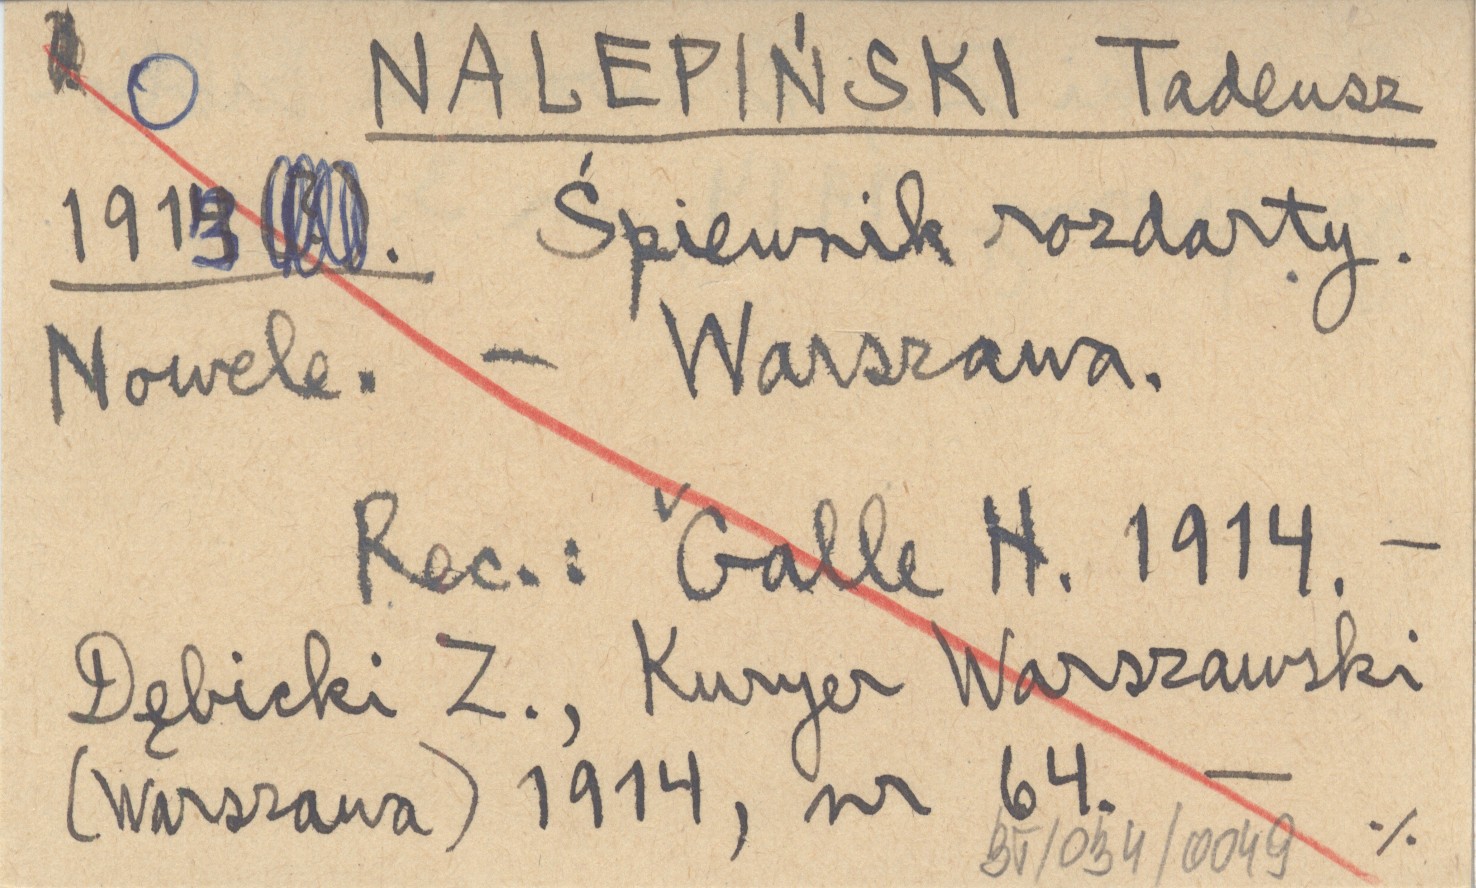 NALEPIŃSKI Tadeusz
1913. Śpiewnik rozdarty.
Nowele. — Warszawa.
Rec.: Galle H. 1914. —
Dębicki Z., Kuryer Warszawski
(Warszawa) 1914, nr 64. — ./.